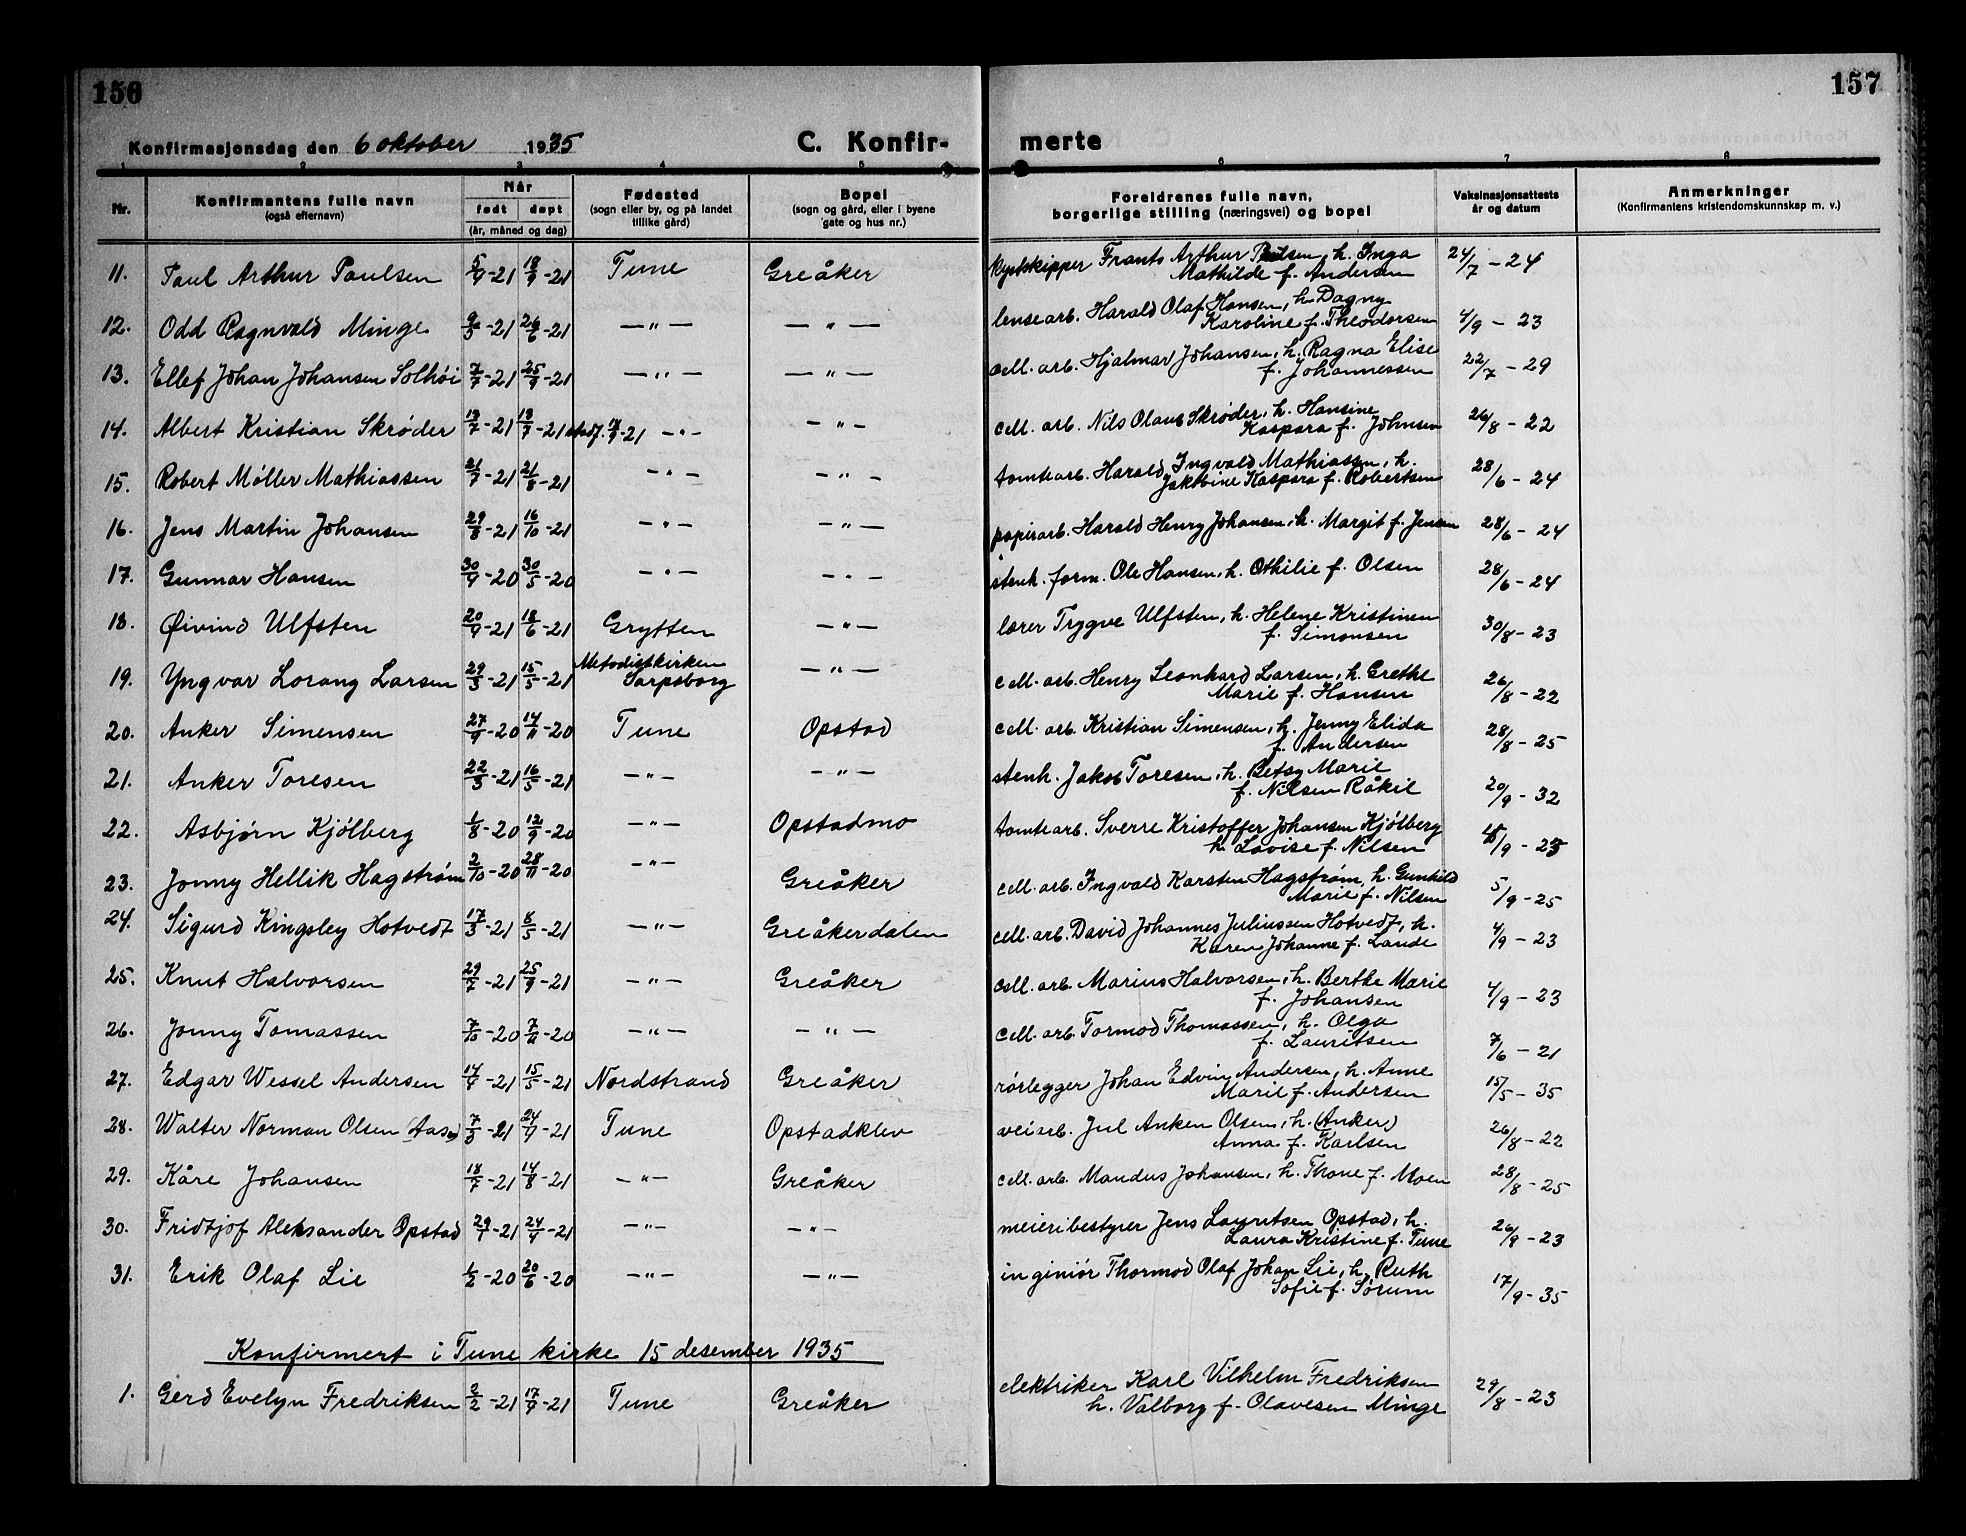 156
157
Konfirmasjonsdag den 6 oktober 1935
C. Konfir-
merte
1 2 3 4 5 6 7 8
Nr.
Konfirmantens fulle navn
(også efternavn)
Når
født døpt
(år, måned og dag)
Fødested
(sogn eller by, og på landet
tillike gård)
Bopel
(sogn og gård, eller i byene
gate og hus nr.)
Foreldrenes fulle navn,
borgerlige stilling (næringsvei) og bopel
Vaksinasjonsattests
år og datum
Anmerkninger
(Konfirmantens kristendomskunnskap m. v.)
11. Paul Arthur Paulsen 5/9-21 18/9-21 Tune Greåker kystskipper Frants Arthur Paulsen, h. Inga
Mathilde f. Andersen 24/7 - 24
12. Odd Ragnvald Minge 9/5-21 26/6-21 —"— —"— lensearb. Harald Olaf Hansen, h. Dagny
Karoline f. Theodorsen 4/9 - 23
13. Ellef Johan Johansen Solhøi 7/7-21 25/9-21 —"— —"— cell. arb. Hjalmar Johansen, h. Ragna Elise
f. Johannessen 22/7 - 29
14. Albert Kristian Skrøder 13/7-21 13/7-21 —"— —"— cell. arb. Nils Olaus Skrøder, h. Hansine
Kaspara f. Johnsen 26/8 - 22
15. Robert Møller Mathiassen 21/7-21 21/8-21 —"— —"— tomtearb. Harald Ingvald Mathiassen, h.
Jakobine Kaspara f. Robertsen 28/6 - 24
16. Jens Martin Johansen 29/8-21 16/10-21 —"— —"— papirarb. Harald Henry Johansen, h. Margit f. Jensen 28/6 - 24
17. Gunnar Hansen 30/9-20 30/5-20 —"— —"— stenh. form. Ole Hansen, h. Othilie f. Olsen 28/6 - 24
18. Øivind Ulfsten 20/9-21 18/6-21 Grytten —"— lærer Trygve Ulfsten, h. Helene Kristinen
f. Simonsen 30/8 - 23
19. Yngvar Lorang Larsen 29/3-21 15/5-21 Metodistkirken
Sarpsborg —"— cell. arb. Henry Leonhard Larsen, h. Grethe
Marie f. Hansen 26/8 - 22
20. Anker Simensen 27/9-20 14/11-20 Tune Opstad cell. arb. Kristian Simensen, h. Jenny Elida
f. Andersen 28/8 - 25
21. Anker Toresen 22/3-21 16/5-21 —"— —"— stenh. Jakob Toresen, h. Betsy Marie
f. Nilsen Råkil 20/9 - 32
22. Asbjørn Kjölberg 1/8-20 12/9-20 —"— Opstadmo tomtearb. Sverre Kristoffer Johansen Kjölberg
h. Lovise f. Nilsen /9 - 23
23. Jonny Hellik Hagstrøm 2/10-20 28/11-20 —"— Greåker cell. arb. Ingvald Karsten Hagstrøm, h. Gunhild
Marie f. Nilsen 5/9 - 25
24. Sigurd Kingsley Hotvedt 17/3-21 8/5-21 —"— Greåkerdalen cell. arb. David Johannes Juliussen Hotvedt, h.
Karen Johanne f. Lande 4/9 - 23
25. Knut Halvorsen 29/7-21 25/9-21 —"— Greåker cell. arb. Marius Halvorsen, h. Berthe Marie
f. Johansen 4/9 - 23
26. Jonny Tomassen 7/10-20 7/11-20 —"— —"— cell. arb. Tormod Thomassen, h. Olga
f. Lauritsen 7/6 - 21
27. Edgar Wessel Andersen 14/4-21 15/5-21 Nordstrand Greåker rörlegger Johan Edvin Andersen, h. Anne
Marie f. Andersen 15/5 - 35
28. Walter Norman Olsen 7/3-21 24/4-21 Tune Opstadklev veiarb. Jul Anken Olsen, h. (Anker)
Anna f. Karlsen 26/8 - 22
29. Kåre Johansen 18/7-21 14/8-21 —"— Greåker cell. arb. Mandus Johansen, h. Thone f. Moen 28/8 - 25
30. Fridtjof Aleksander Opstad 29/1-21 24/4-21 —"— —"— meieribestyrer Jens Lauritsen Opstad, h.
Laura Kristine f. Tune 26/9 - 23
31. Erik Olaf Lie 1/2-20 20/6-20 —"— —"— ingeniör Thormod Olaf Johan Lie, h. Ruth
Sofie f. Sørum 17/9 - 35
Konfirmert i Tune kirke 15 desember 1935
1. Gerd Evelyn Fredriksen 2/2-21 17/4-21 Tune Greåker elektriker Karl Vilhelm Fredriksen
h. Valborg f. Olavesen Minge 29/8 - 23